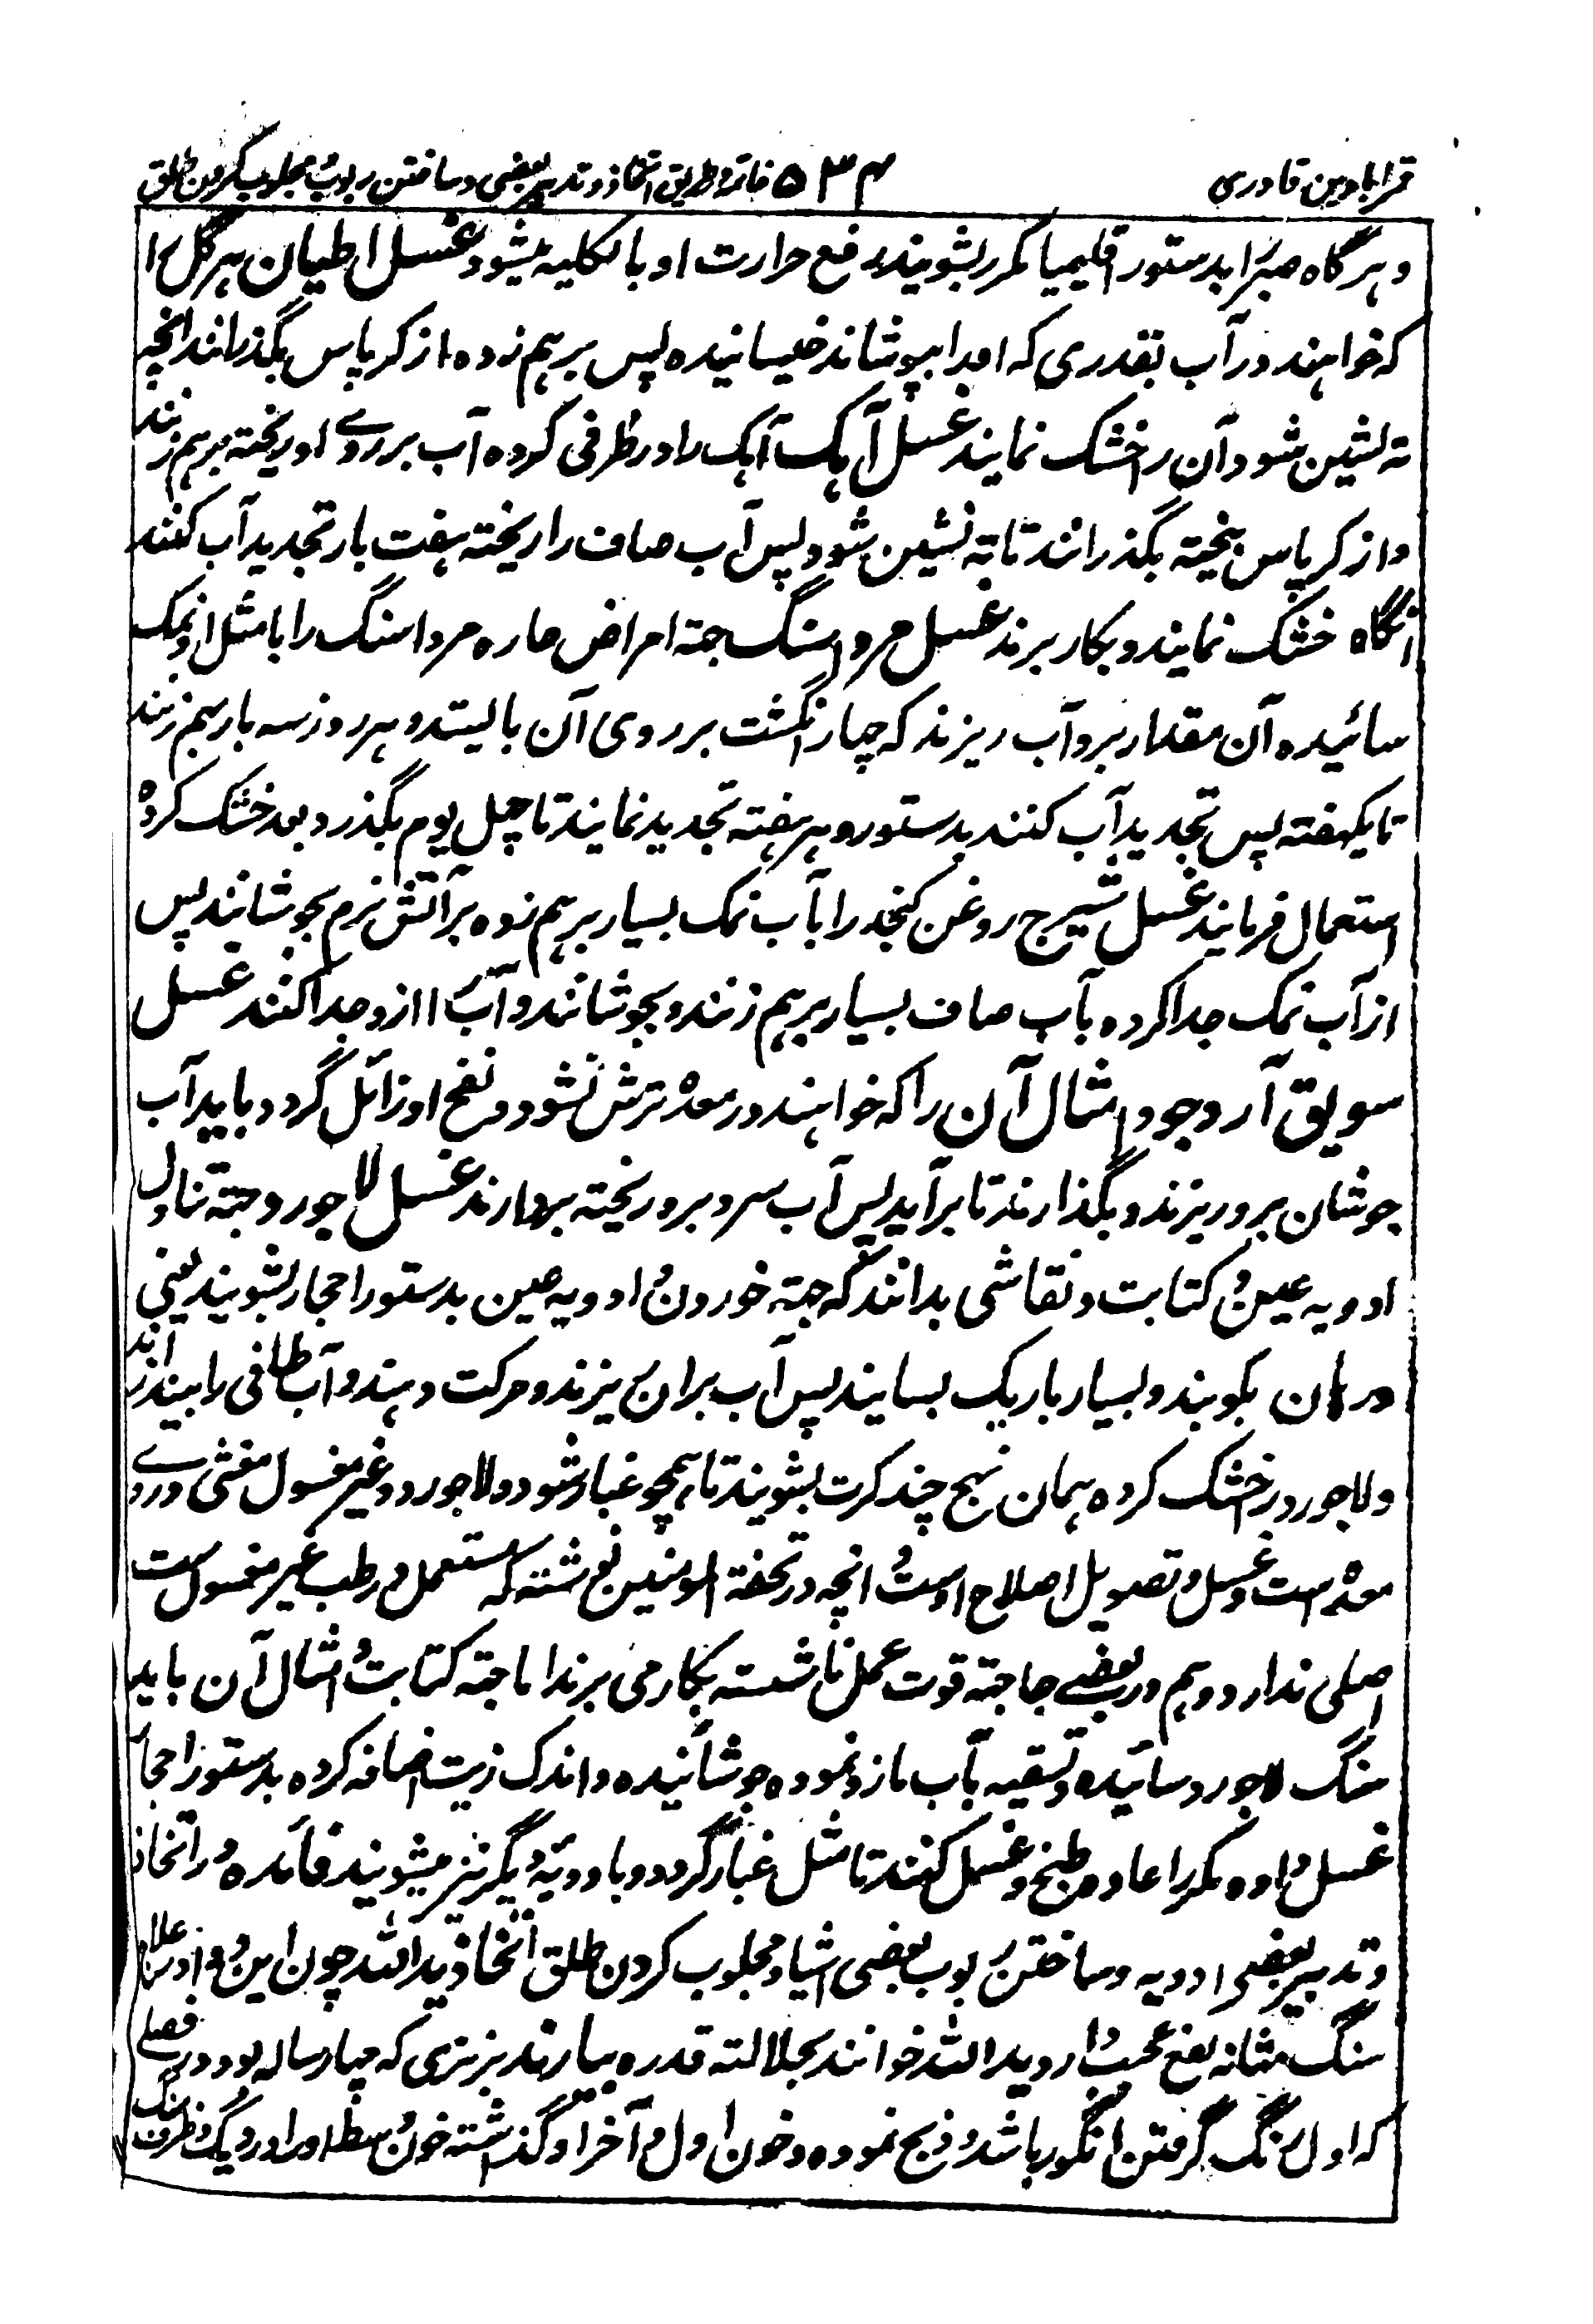 قرابادین قادری ۵۳۴ خاتمه طریق اتخاذ و تدبیر بعضی و ساختن ربوب و مجلوب کردن طلق
و هر گاه صبر را بدستور اقلیمیا مکرر بشویند رفع حرارت او بالکلیه میشود غسل اطیان هر گل را
که خواهند در آب بقدری که او را بپوشاند خیسانیده پس برهم زده از کرپاس بگذرانند انچه
ته نشین شود آن را خشک نمایند غسل آهک آهک را در ظرفی کرده آب بر روے او ریخته برهم زنند
و از کرپاس پخته بگذرانند تا ته نشین شود پس آب صاف را ریخته هفت بار تجدید آب کنند
انگاه خشک نمایند و بکار برند غسل مرداسنگ جهة امراض حاره مرداسنگ را با مثل او نمک
سائیده آن مقدار برو آب ریزند که چهار انگشت بر روی آن بالیستد و هر روز سه بار برهم زنند
تا یکهفته پس تجدید آب کنند بدستور و هر هفته تجدید نمایند تا چهل یوم بگذرد بعد خشک کرده
استعمال فرمایند غسل شیرج روغن کنجد را بآب نمک بسیار برهم زده بر آتش نرم بجوشانند پس
از آب نمک جدا کرده بآب صاف بسیار برهم زنند و بجوشانند و آب را ازو جدا کنند غسل
سویق آرد جو و امثال آن را که خواهند در معده ترش نشود و نفخ او زائل گردد باید آب
جوشان برو ریزند و بگذارند تا برآید پس آب سرد برو ریخته بردارند غسل لاجورد جهة تناول
ادویه عین و کتابت و نقاشی بدانند که جهة خوردن و ادویه عین بدستور احجار بشویند یعنی
در هاون بکوبند و بسیار باریک بسایند پس آب بران ریزند و حرکت دهند و آب طافی را بیندازند
و لاجورد را خشک کرده بهمان نهج چند کرت بشویند تا همچو غبار شود و لاجورد غیر مغسول مغثی و ردے
معده است و غسل و تصویل اصلاح اوست و انچه در تحفة المومنین نوشته که مستعمل در طب غیر مغسول ست
اصلی ندارد و هم در بعضے جا جهة قوت عمل ناشسته بکار می برند اما جهة کتابت و امثال آن باید
سنگ لاجورد سائیده و تسقیه بآب مازو نموده جوشانیده و اندک زیت اضافه کرده بدستور احجار
غسل داده مکرر اعاده طبخ و غسل کنند تا مثل غبار گردد و با ادویه دیگر نیز میشویند فائده در اتخاذ
و تدبیر بعضی ادویه و ساختن ربوب بعضی اشیا و مجلوب کردن طلق اتخاذ ید الله چون این دوا در علاج
سنگ مثانه نفع عجیب دارد ید الله خوانند بجلالة قدره بیارند بز نری که چهار ساله بود در فصلے
که اول رنگ گرفتن انگور باشد و ذبح نموده و خون اول و آخر او گذاشته خون وسط او را در دیگ و ظرف سنگ